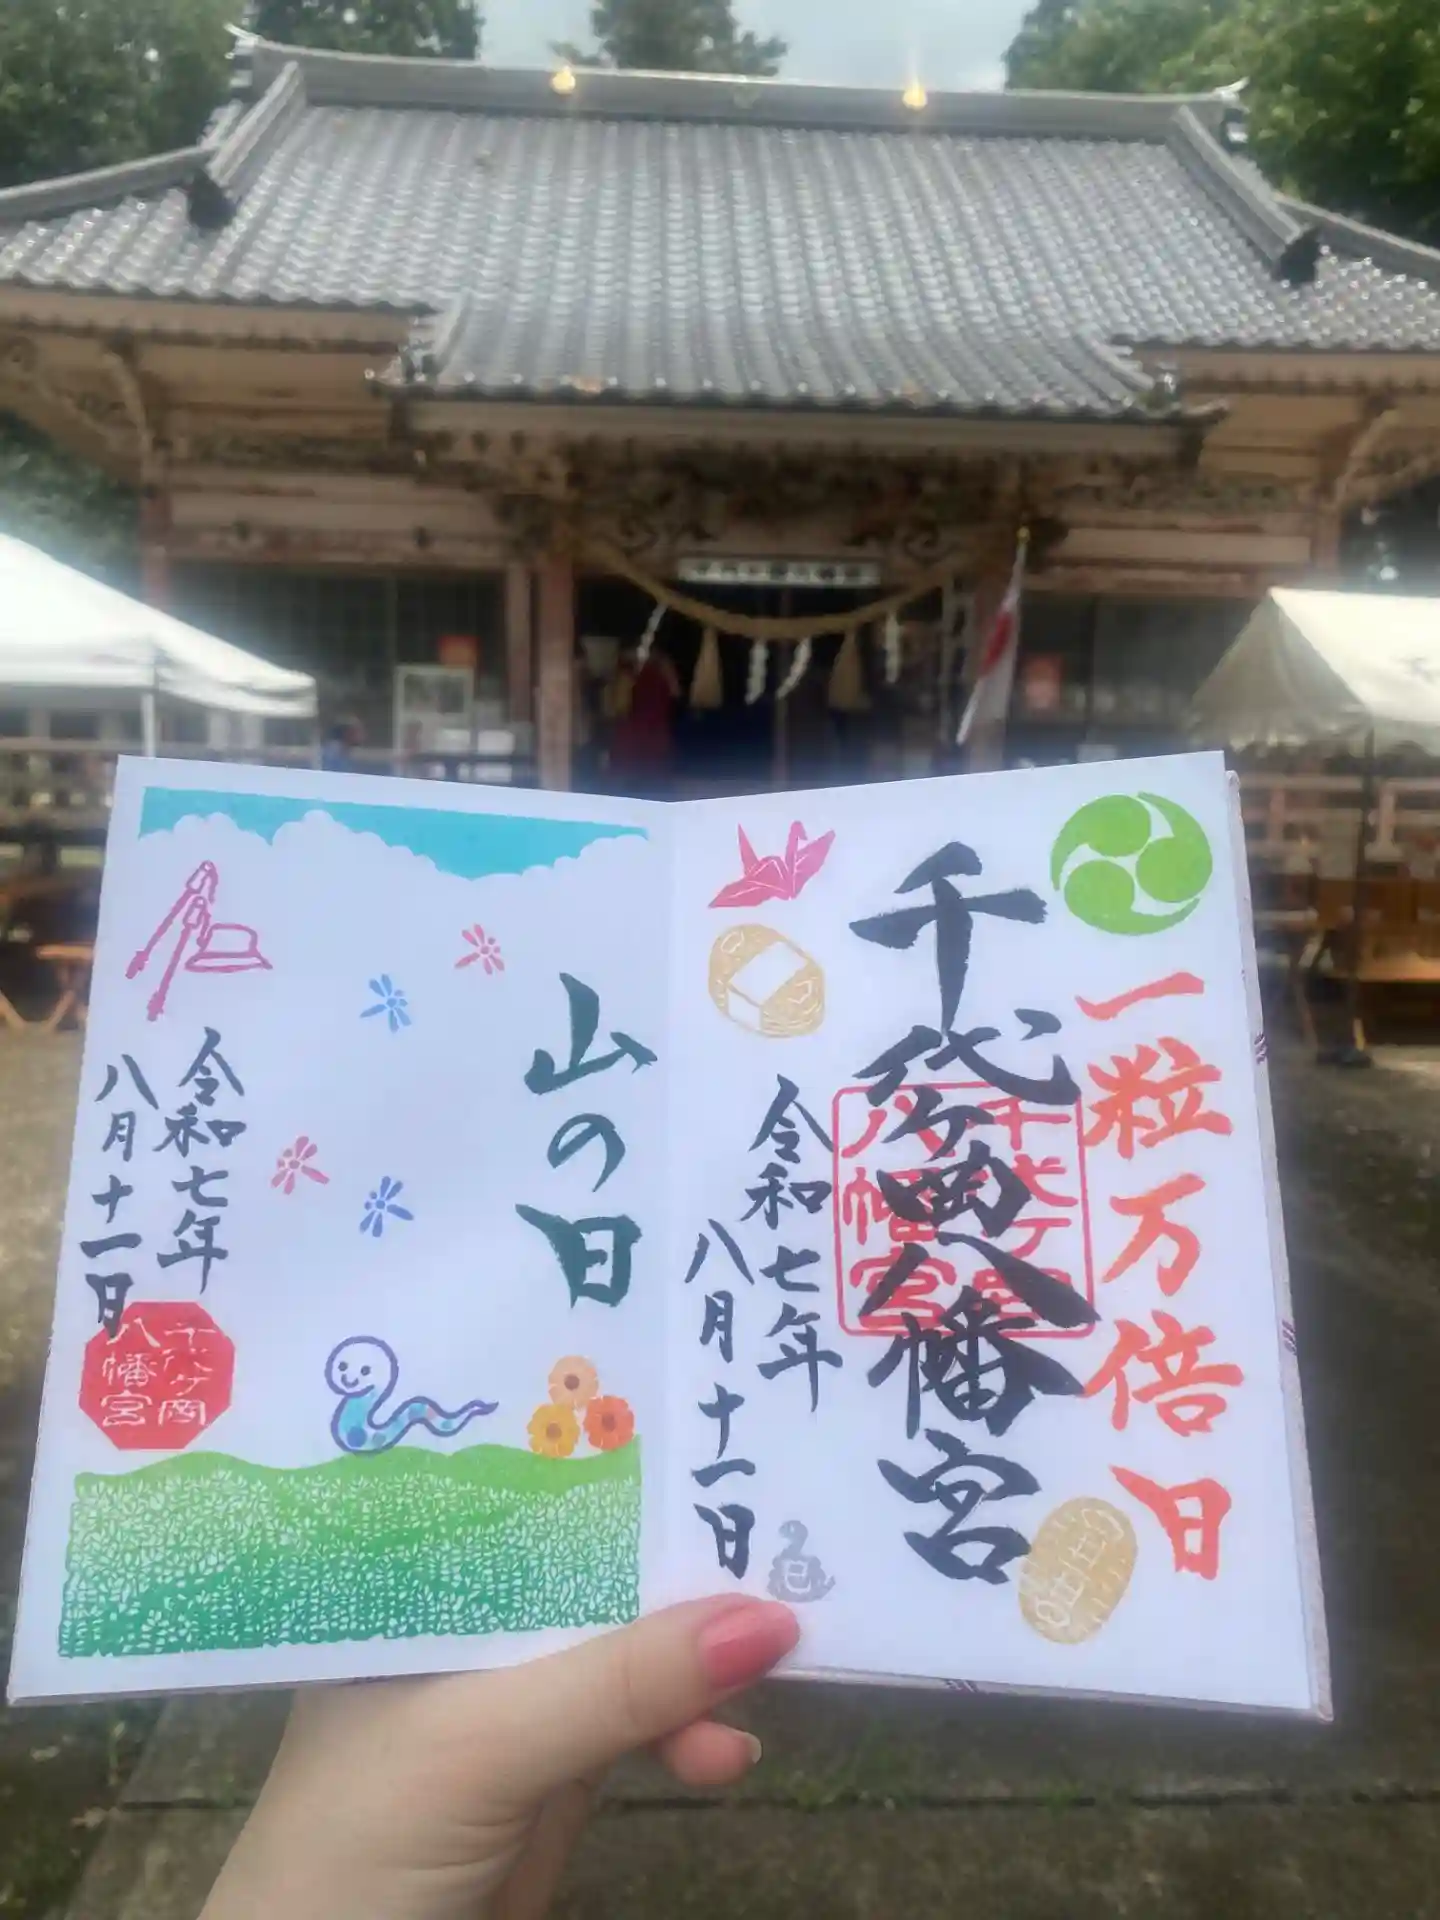 一粒万倍日
千代ケ岡八幡宮
千代ケ岡
八幡宮
令和七年
八月十一日
巳
山の日
令和七年
八月十一日
千代ケ岡
八幡宮